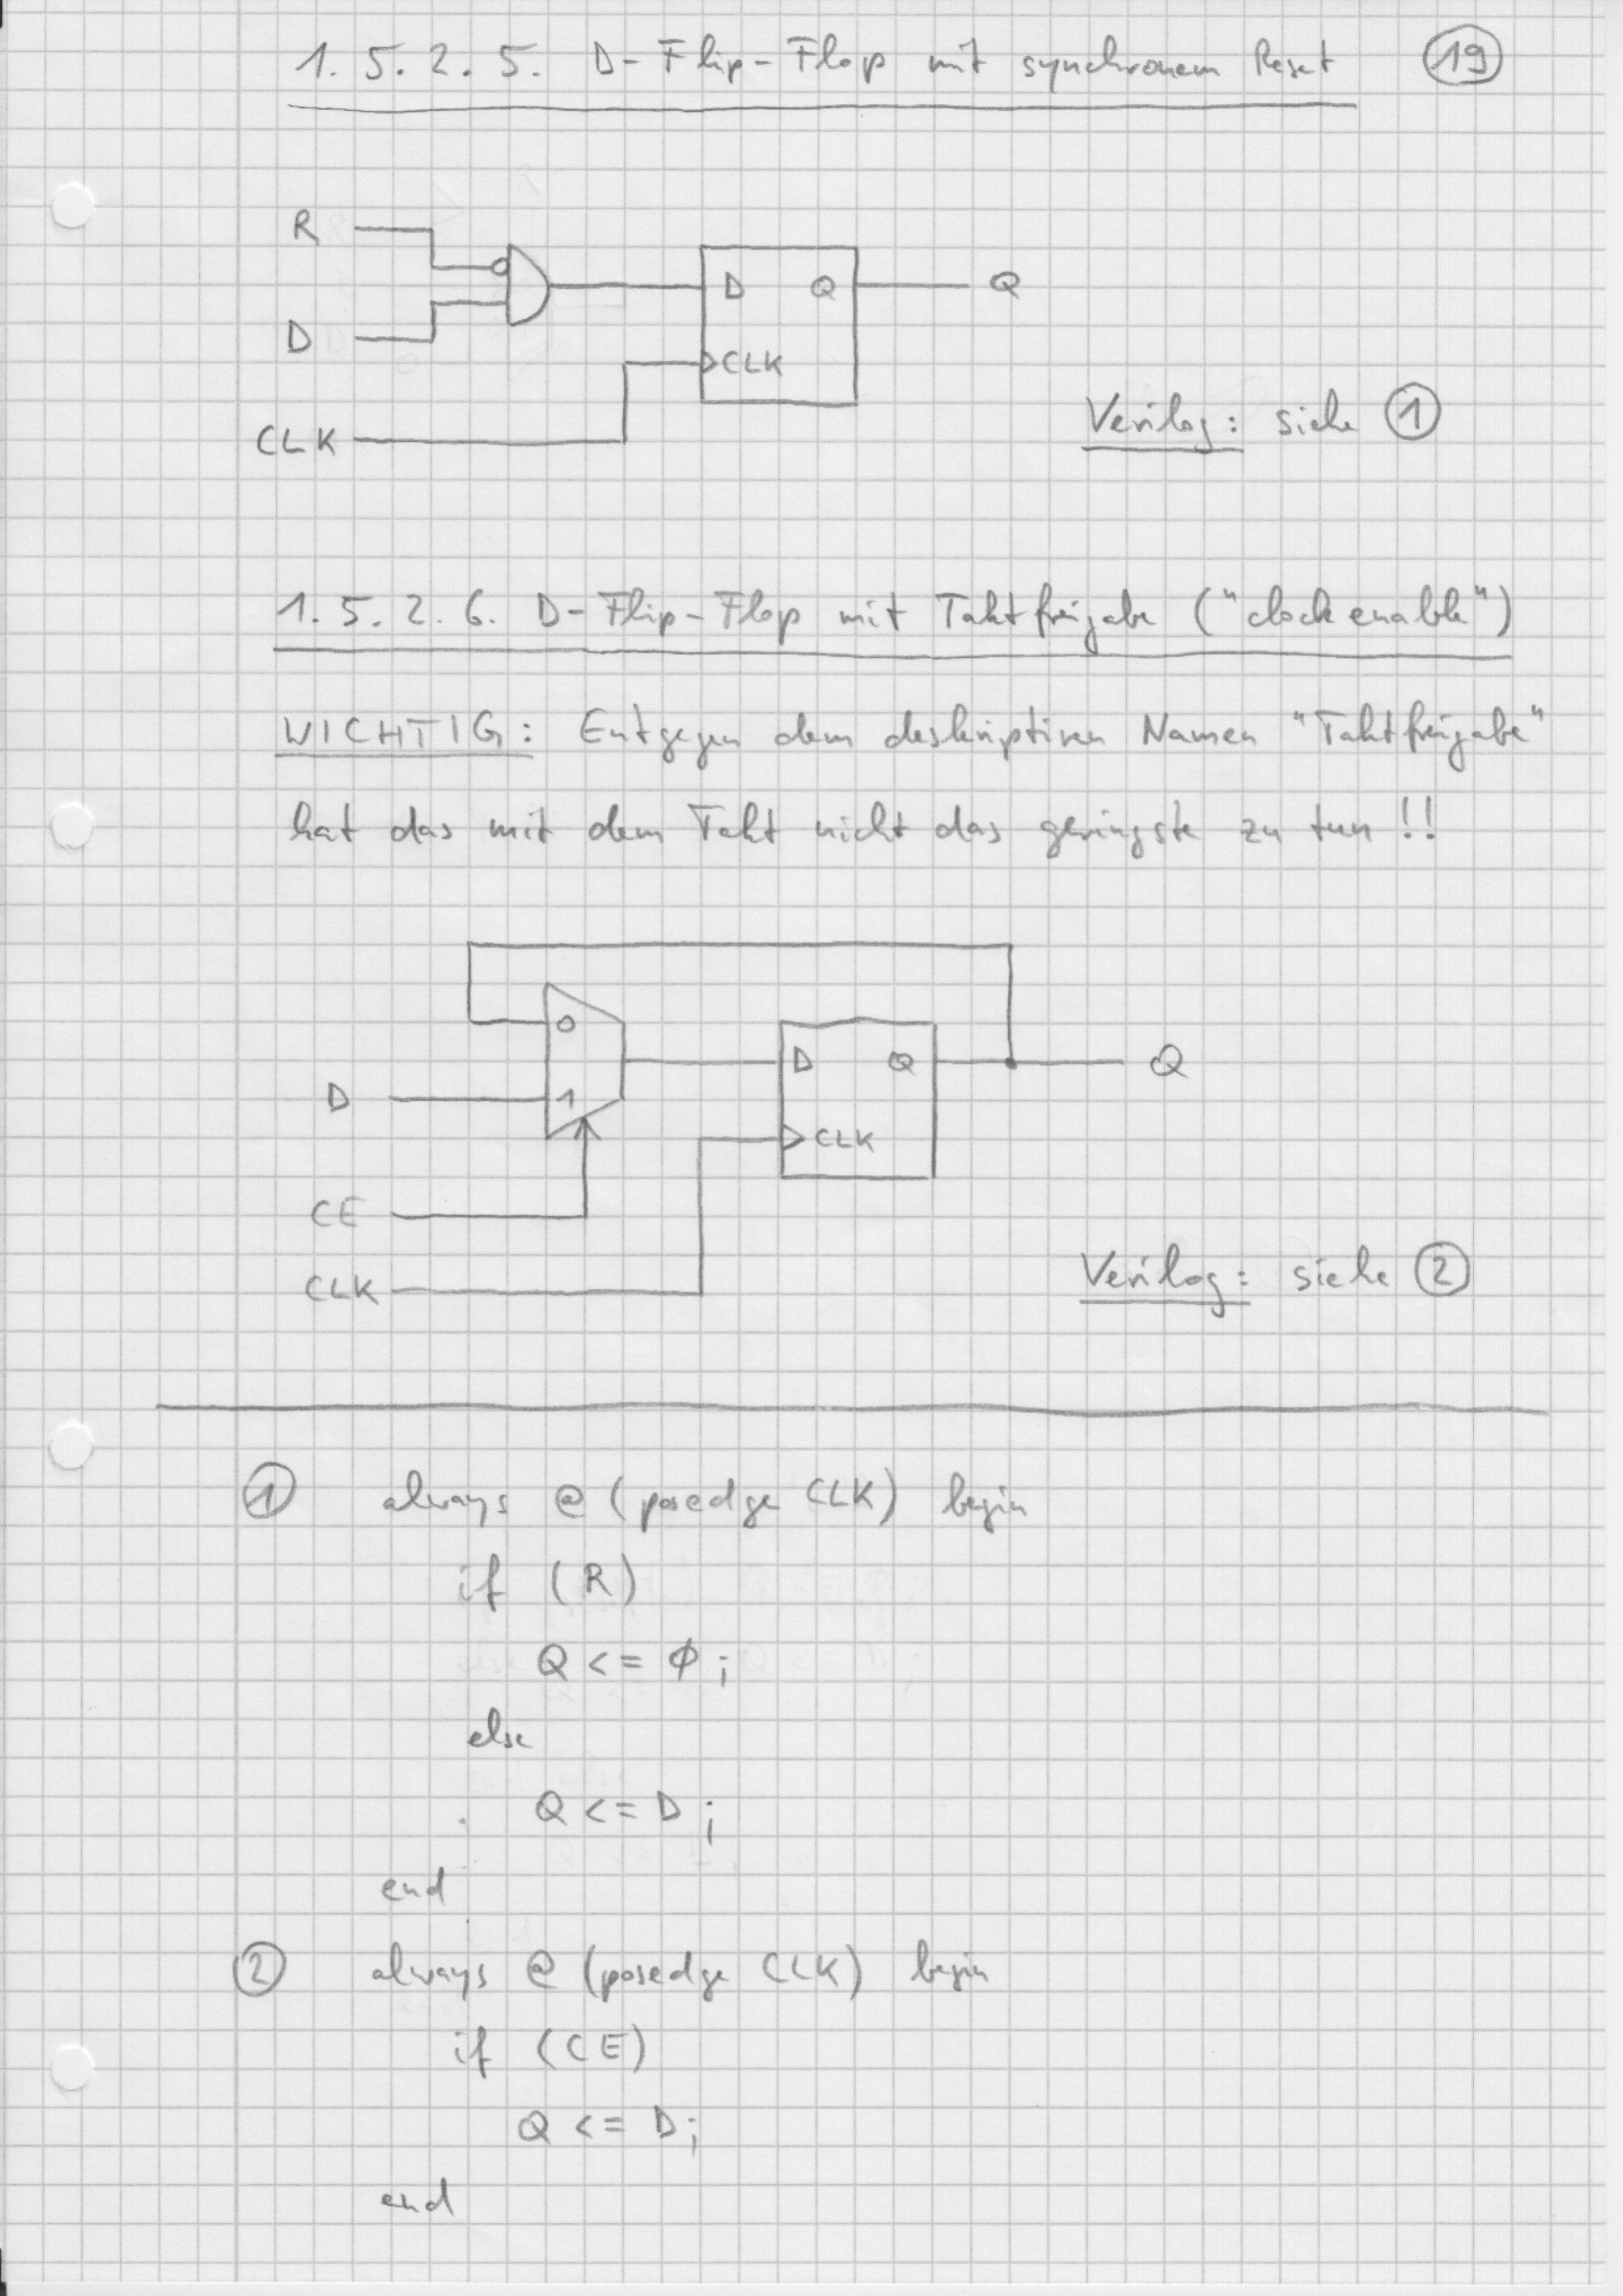 1.5.2.5. D-Flip-Flop mit synchronem Reset 19
R
D
D Q
Q
CLK
CLK
Verilog: siehe 1
1.5.2.6. D-Flip-Flop mit Taktfreigabe ("clock enable")
WICHTIG: Entgegen dem deskriptiven Namen "Taktfreigabe"
hat das mit dem Takt nicht das geringste zu tun !!
0
D
1
D Q
Q
CLK
CE
CLK
Verilog: siehe 2
1 always @ (posedge CLK) begin
if (R)
Q <= ϕ;
else
Q <= D;
end
2 always @ (posedge CLK) begin
if (CE)
Q <= D;
end